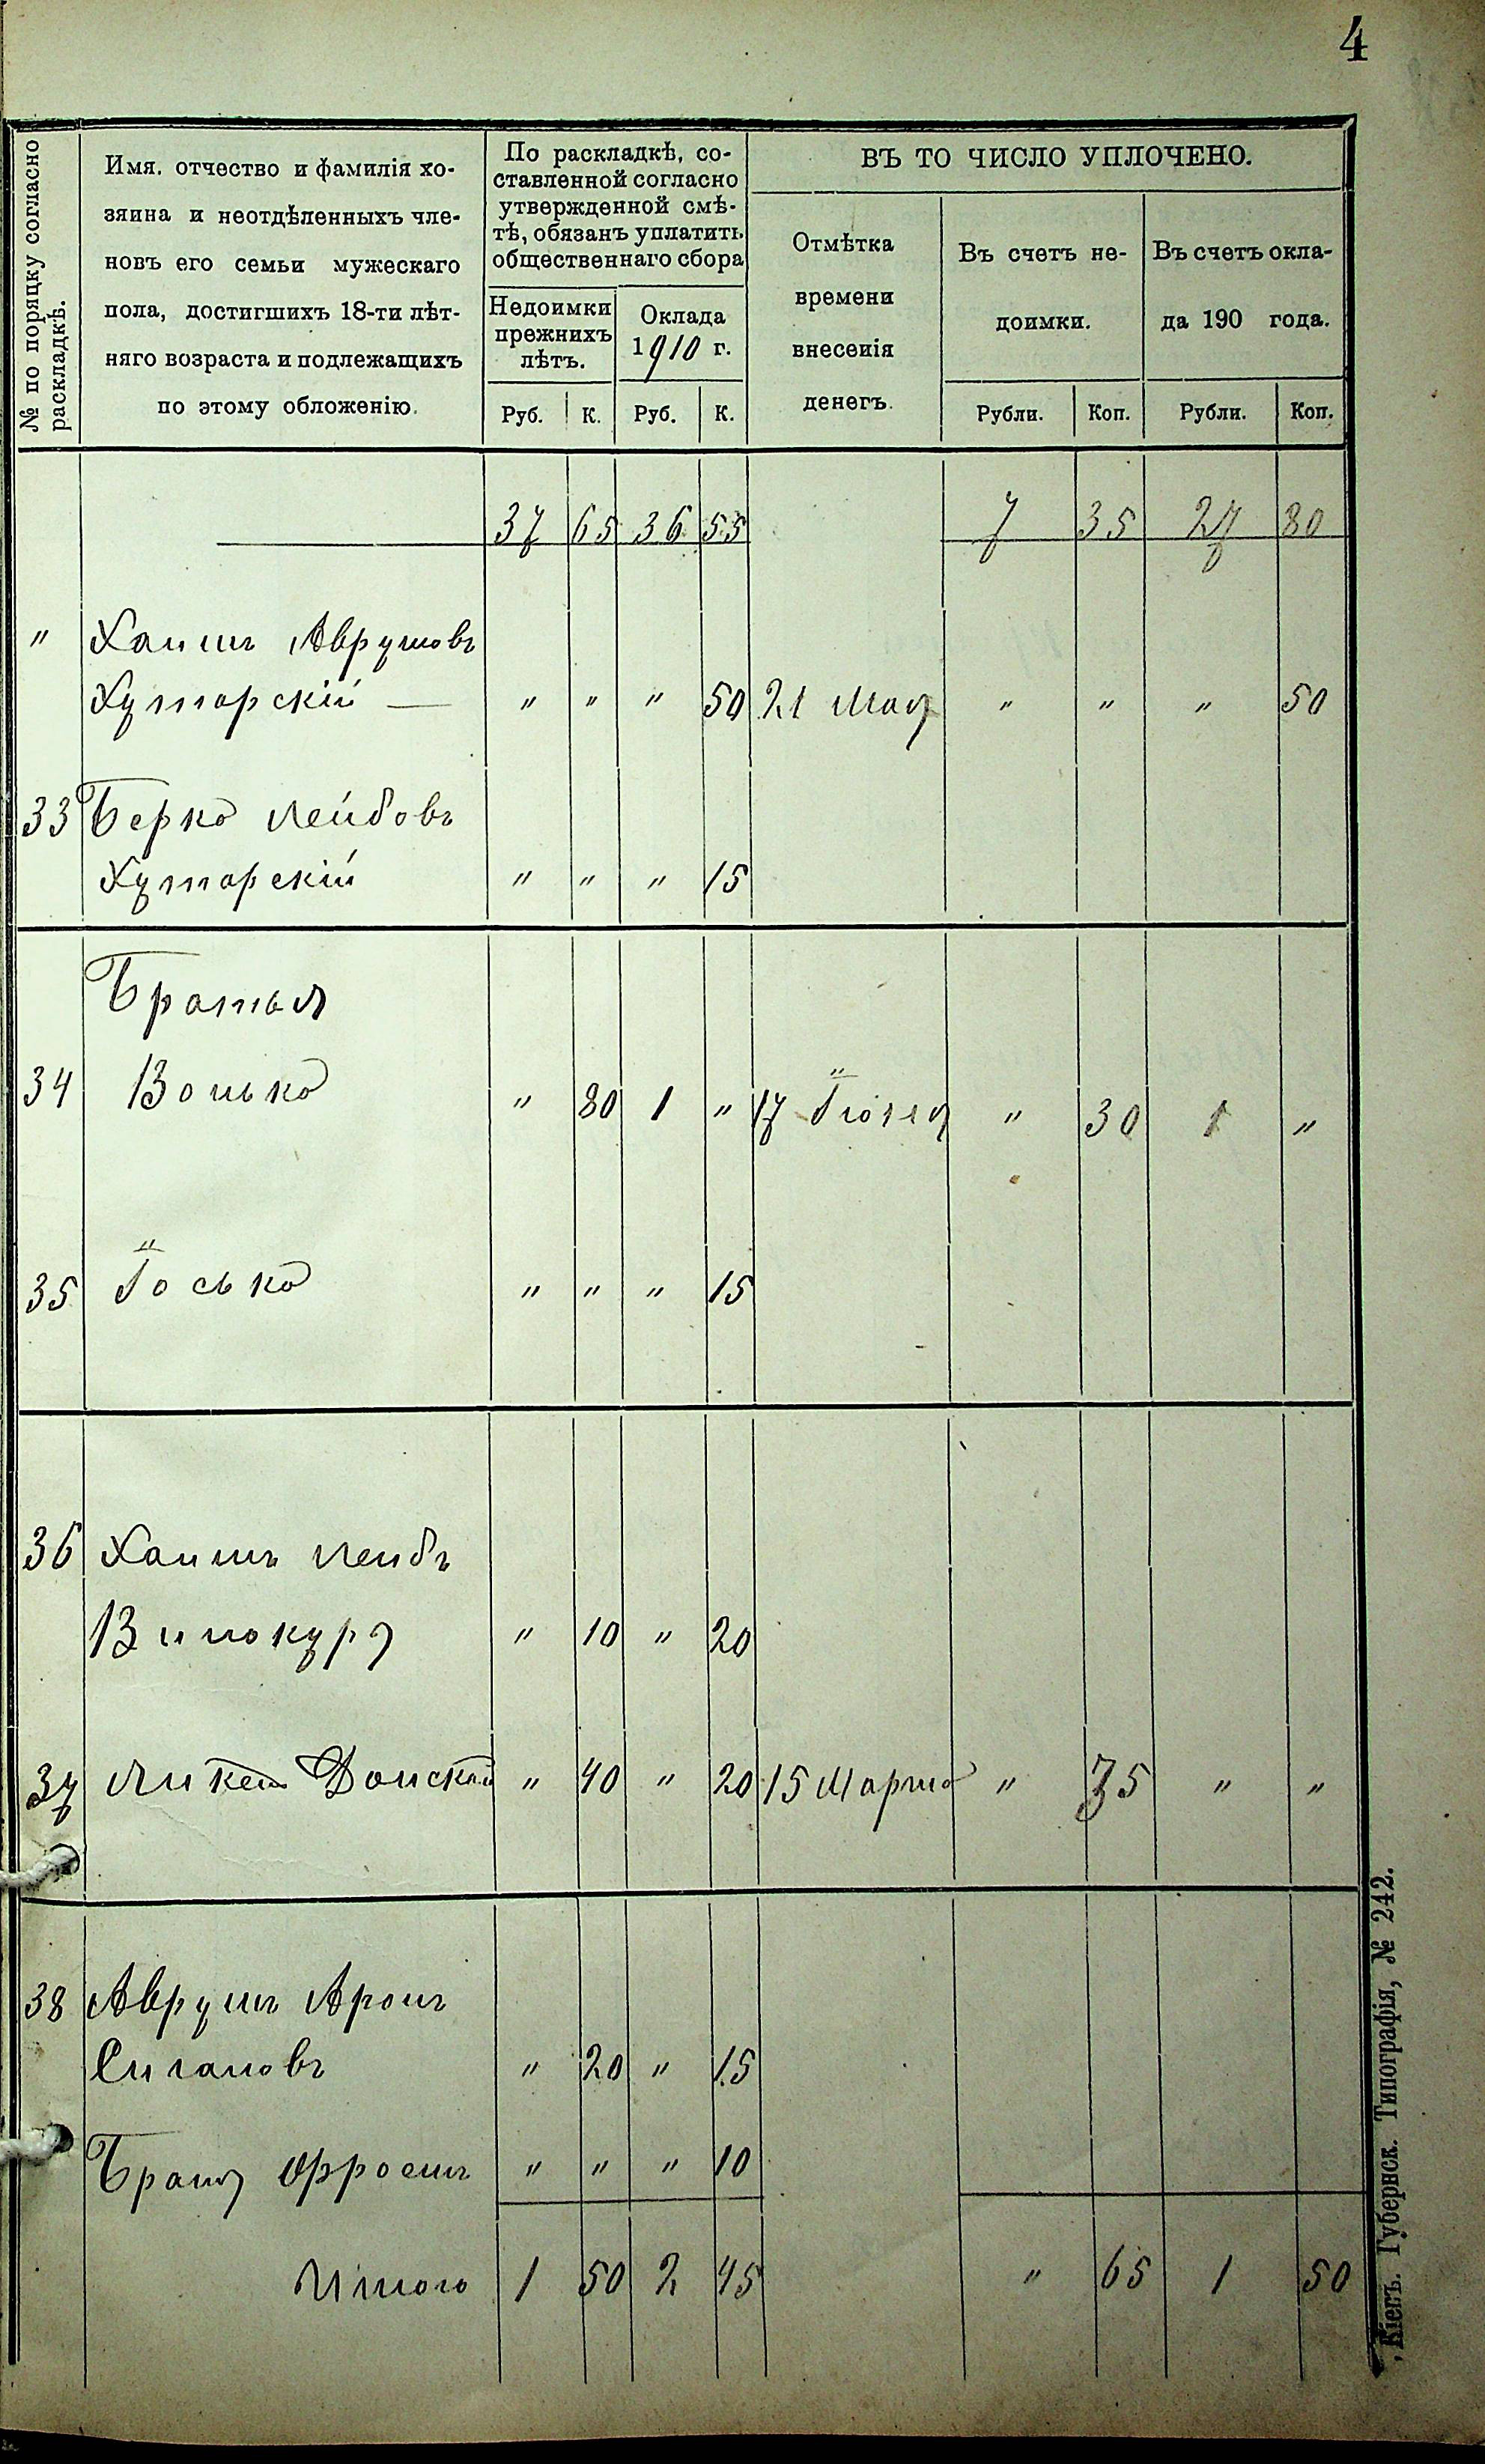 4
№ по поряцку согласно раскладкѣ.
Имя. отчество и фамилія хо-
зяина и неотдѣленныхъ чле-
новъ его семьи мужескаго
пола, достигшихъ 18-ти лѣт-
няго возраста и подлежащихъ
по этому обложенію.
По раскладкѣ, со-
ставленной согласно
утвержденной смѣ-
тѣ, обязанъ уплатить
общественнаго сбора
Недоимки
прежнихъ
лѣтъ.
Оклада
1910 г.
Руб. К. Руб. К.
ВЪ ТО ЧИСЛО УПЛОЧЕНО.
Отмѣтка
времени
внесенія
денегъ.
Въ счетъ не-
доимки.
Въ счетъ окла-
да 190 года.
Рубли. Коп. Рубли. Коп.
37 65 36 55 7 35 27 80
" Хаимъ Аврумовъ
Хуторскій — " " " 50 21 Мая " " " 50
33 Берко Лейбовъ
Хуторскій " " " 15
Братья
34 Волько " 80 1 " 17 Іюля " 30 1 "
35 Іосько " " " 15
36 Хаимъ Лейбъ
Винокуръ " 10 " 20
37 Донской " 40 " 20 15 Марта " 35 " "
38 Аврумъ Аронъ
Сигаловъ " 20 " 15
Братъ Фроемъ " " " 10
Итого 1 50 2 45 " 65 1 50
Кіевъ. Губернск. Типографія, № 242.